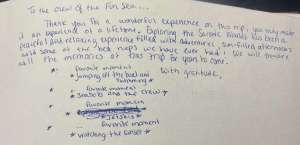 To the crew of the Fun Sea...
Thank you for a wonderful experience on this trip, you truly made
it an experience of a lifetime. Exploring the Islands has been a
peaceful and relaxing experience filled with adventures, sun-filled afternoons
and some of the best naps we have ever had! We will treasure
all the memories of this trip for years to come.
With gratitude,
* : favorite moment
* jumping off the boat and swimming *
* : favorite moment
* snacks and the crew *
* : favorite moment
* jetskis *
* : favorite moment
* watching the sunset *